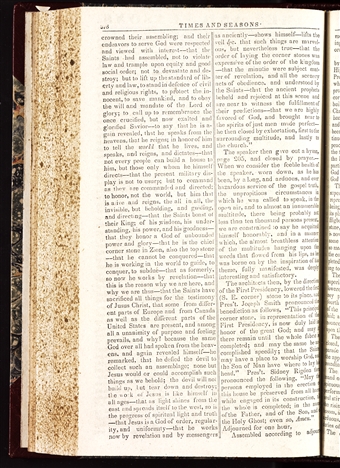 TIMES AND SEASONS
crowned their assembling; and their
endeavors to serve God were respected
and viewed with interest—that the
Saints had assembled, not to violate
law and trample upon equity and good
social order; not to devastate and de-
stroy; but to lift up the standard of lib-
erty and law, to stand in defence of civil
and religious rights, to protect the in-
nocent, to save mankind, and to obey
the will and mandate of the Lord of
glory; to call up to remembrance the
once crucified, but now exalted and
glorified Savior—to say that he is a-
gain revealed, that he speaks from the
heavens, that he reigns; in honor of him
to tell the world that he lives, and
speaks, and reigns, and dictates—that
not every people can build a house to
him, but those only whom he himself
directs—that the present military dis-
play is not to usurp; but to command
as they are commanded and directed;
to honor, not the world, but him that
is alive and reigns, the all in all, the
invisible, but beholding, and guiding,
and directing—that the Saints boast of
their King; of his wisdom, his under-
standing, his power, and his goodness—
that they honor a God of unbounded
power and glory—that he is the chief
corner stone in Zion, also the top stone
—that he cannot be conquered—that
he is working in the world to guide, to
conquer, to subdue—that as formerly,
so now he works by revelation—that
this is the reason why we are here, and
why we are thus—that the Saints have
sacrificed all things for the testimony
of Jesus Christ, that some from differ-
ent parts of Europe and from Canada
as well as the different parts of the
United States are present, and among
all a unanimity of purpose and feeling
prevails, and why? because the same
God over all had spoken from the heav-
ens, and again revealed himself—he
remarked, that he defied the devil to
collect such an assemblage; none but
Jesus would or could accomplish such
things as we behold; the devil will not
build up, but tear down and destroy;
the work of Jesus is like himself in
all ages—that as light shines from the
east and spreads itself to the west, so is
the progress of spiritual light and truth
—that Jesus is a God of order, regular-
ity, and uniformity—that he works
now by revelation and by messengers
as anciently—shows himself—lifts the
veil &c. that such things are marvel-
ous, but nevertheless true—that the
order of laying the corner stones was
expressive of the order of the kingdom
—that the minutia were subject mat-
ter of revelation, and all the scenery
acts of obedience, and understood by
the Saints—that the ancient prophets
beheld and rejoiced at this scene and
are near to witness the fulfilment of
their predictions—that we are highly
favored of God, and brought near to
the spirits of just men made perfect—
he then closed by exhortation, first to the
surrounding multitude, and lastly to
the church."
The speaker then gave out a hymn,
page 205, and closed by prayer.
When we consider the feeble health of
the speaker, worn down, as he has
been, by a long, and arduous, and ever
hazardous service of the gospel; and,
the unpropitious circumstances in
which he was called to speak, in the
open air, and to almost an innumerable
multitude, there being probably not
less than ten thousand persons present,
we are constrained to say he acquitted
himself honorably, and in a manner
which, the almost breathless attention
of the multitudes hanging upon the
words that flowed from his lips, as he
was borne on by the inspiration of his
theme, fully manifested, was deeply
interesting and satisfactory.
The architects then, by the direction
of the First Presidency, lowered the 1st
(S. E. corner) stone to its place, and
Pres't. Joseph Smith pronounced the
benediction as follows, "This principal
corner stone, in representation of the
First Presidency, is now duly laid in
honor of the great God; and may it
there remain until the whole fabric is
completed; and may the same be ac-
complished speedily; that the Saints
may have a place to worship God, and
the Son of Man have where to lay his
head." Pres't. Sidney Rigdon then
pronounced the following, "May the
persons employed in the erection of
this house be preserved from all harm
while engaged in its construction, till
the whole is completed; in the name
of the Father, and of the Son, and of
the Holy Ghost; even so, Amen."
Adjourned for one hour.
Assembled according to adjourn-